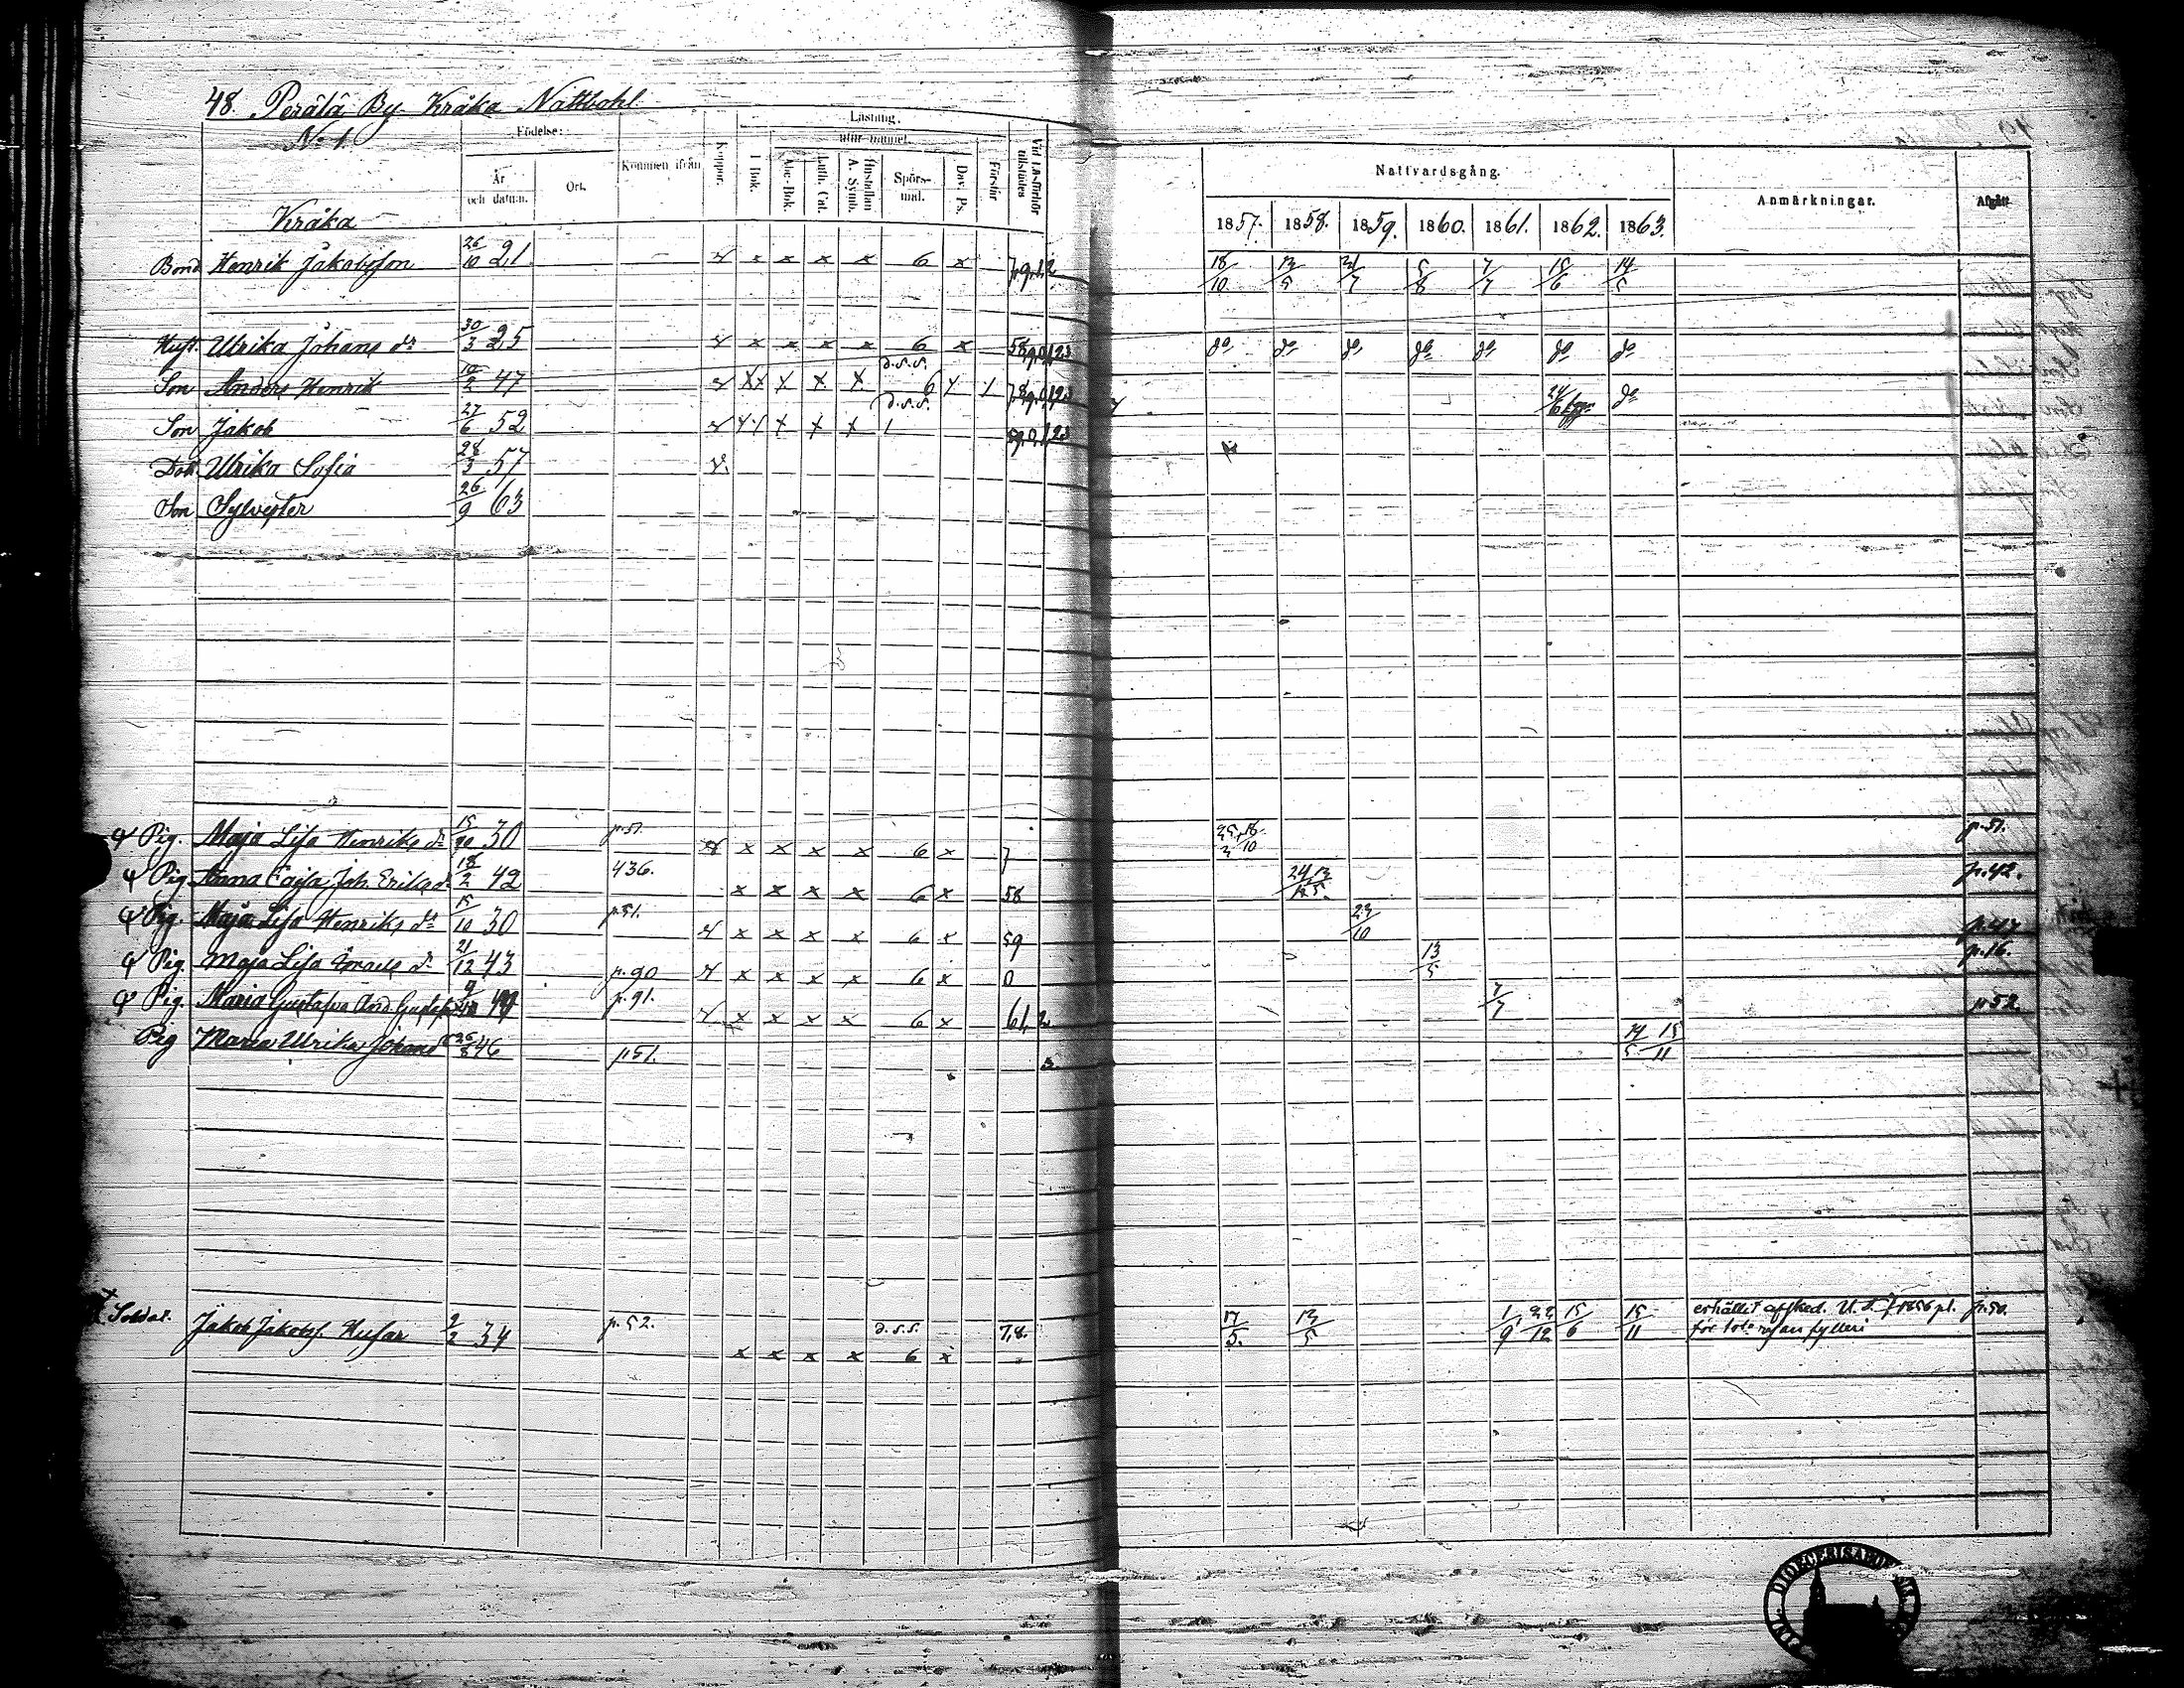 48. Perälä By Kråka Nattbohl
No 1.
Födelse:
År och datum.
Ort.
Kommen ifrån
Koppor.
Läsning.
I Bok.
utur minnet.
Abc-Bok.
Luth. Cat.
Hustaflan A. Symb.
Spörs-mål.
Dav. Ps.
Förstår
Nattvardsgång.
1857. 1858. 1859. 1860. 1861. 1862. 1863.
Anmärkningar.
Afgått
Kråka
Bond Henrik Jakobsson 26/10 21 x x x x 6 x 18/10 13/5 31/7 5/8 7/7 15/6 14/5
Hust. Ulrika Johans dr 30/3 25 x x x x 6 x do do do do do do do
Son Anders Henrik 10/2 47 d.s.s. 6 24/6 do
Son Jakob 27/6 52 d.s.s. 1
Dot. Ulrika Sofia 28/3 57 v.
Son Sylvester 26/9 63
Pig. Maja Lisa Henriks dr 15/10 30 p.51. x x x x 6 x 7 p.51.
Pig Anna Caisa Joh. Eriks dr 18/2 42 436. x x x x 6 x 58 24/12 13/5. p.42.
Pig. Maja Lisa Henriks dr 15/10 30 p.51. x x x x 6 x 59 23/10 p.47
Pig. Maja Lisa Israels dr 21/12 43 p.90 x x x x 6 x 0 13/5 p.16.
Pig. Maria Gustafva And. p.91. x x x x 6 x 61, 2 7/7 p52.
Pig Maria Ulrika Johans dr 26/8 46 p51. 3. 14/5 15/11
Soldat. Jakob Jakobs. Husar 2/2 34 p.52. d.s.s. 7,8. 17/5. 13/5 1/9 22/12 15/6 15/11 erhållit afsked. p.50.
x x x x 6 x för fylleri